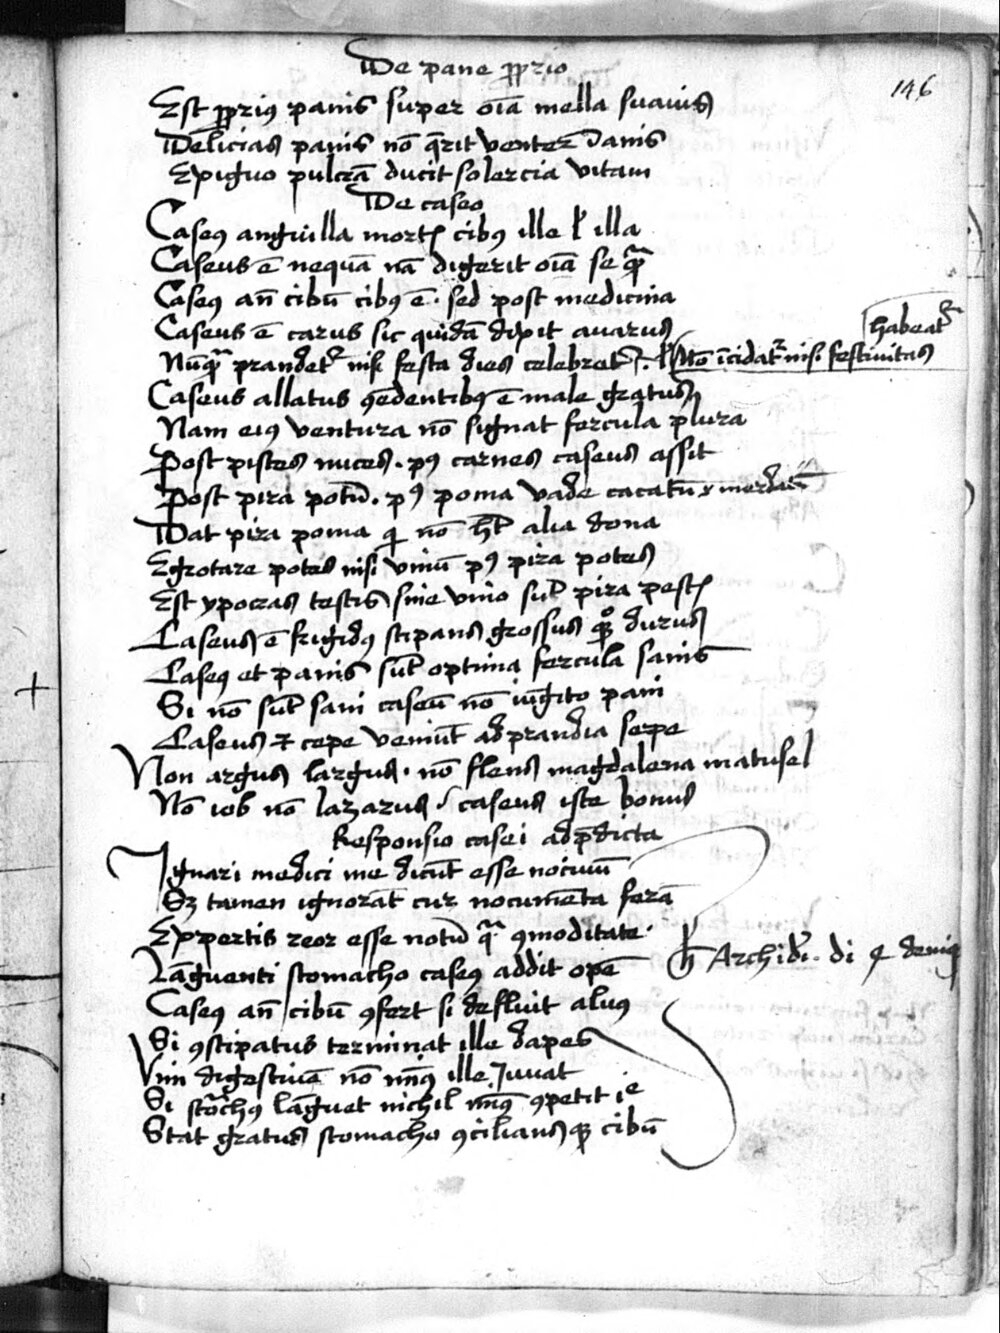 De pane ꝓprio
146
Est ꝓpriꝰ panis super oīa mella suauis
Delicias panis nō q̄rit venter īanis
Exiguo pulcrā ducit solercia vitam
De caseo
Caseꝰ anguilla mortꝭ cibꝰ ille ł illa
Caseus ē nequā nā digerit oīa se qͣꝫ
Caseꝰ an̄ cibū cibꝰ ē · sed post medicina
Caseus ē carus sic quidā dixit auarus
habeatᷣ
Nūqͣꝫ prandetᷣ nisi festa dies celebretᷣ · ł Nō īcidatᷣ nisi festiuitas
Caseus allatus ꝯedentibꝰ ē male gratus
Nam eiꝰ ventura nō signat fercula plura
Post pisces nuces · pꝰ carnes caseus assit
Post pira potū · pꝰ poma vade cacatū ł merdatū
Dat pira poma qi nō hꝫ alia dona
Egrotare potes nisi vinū pꝰ pira potes
Est ypocras testis sine vino sūt pira pestꝭ
Caseus ē frigidꝰ stipans grossus qꝫ durus
Caseꝰ et panis sūt optima fercula sanis
Si nō sūt sani caseū nō iūgito pani
Caseus ⁊ cepe veniūt ad prandia sepe
Non argus largus · nō flens magdalena matusel
Nō iob nō lazarus · caseus iste bonus
Responsio casei ad p̄dicta
Ignari medici me dicūt esse nociuū
Sꝫ tamen ignorāt cur nocumēta ferā
Expertis reor esse notū qͣ ꝯmoditate
Lāguenti stomacho caseꝰ addit opē
Archidi. di
Caseꝰ an̄ cibū ꝯfert si defluit aluꝰ
Si ꝯstipatus terminat ille dapes
Vim digestiuā nō minꝰ ille Juuat
Si stōachꝰ lāguet nichil minꝰ ꝯpetit
Stat gratus stomacho ꝯciliansqꝫ cibū